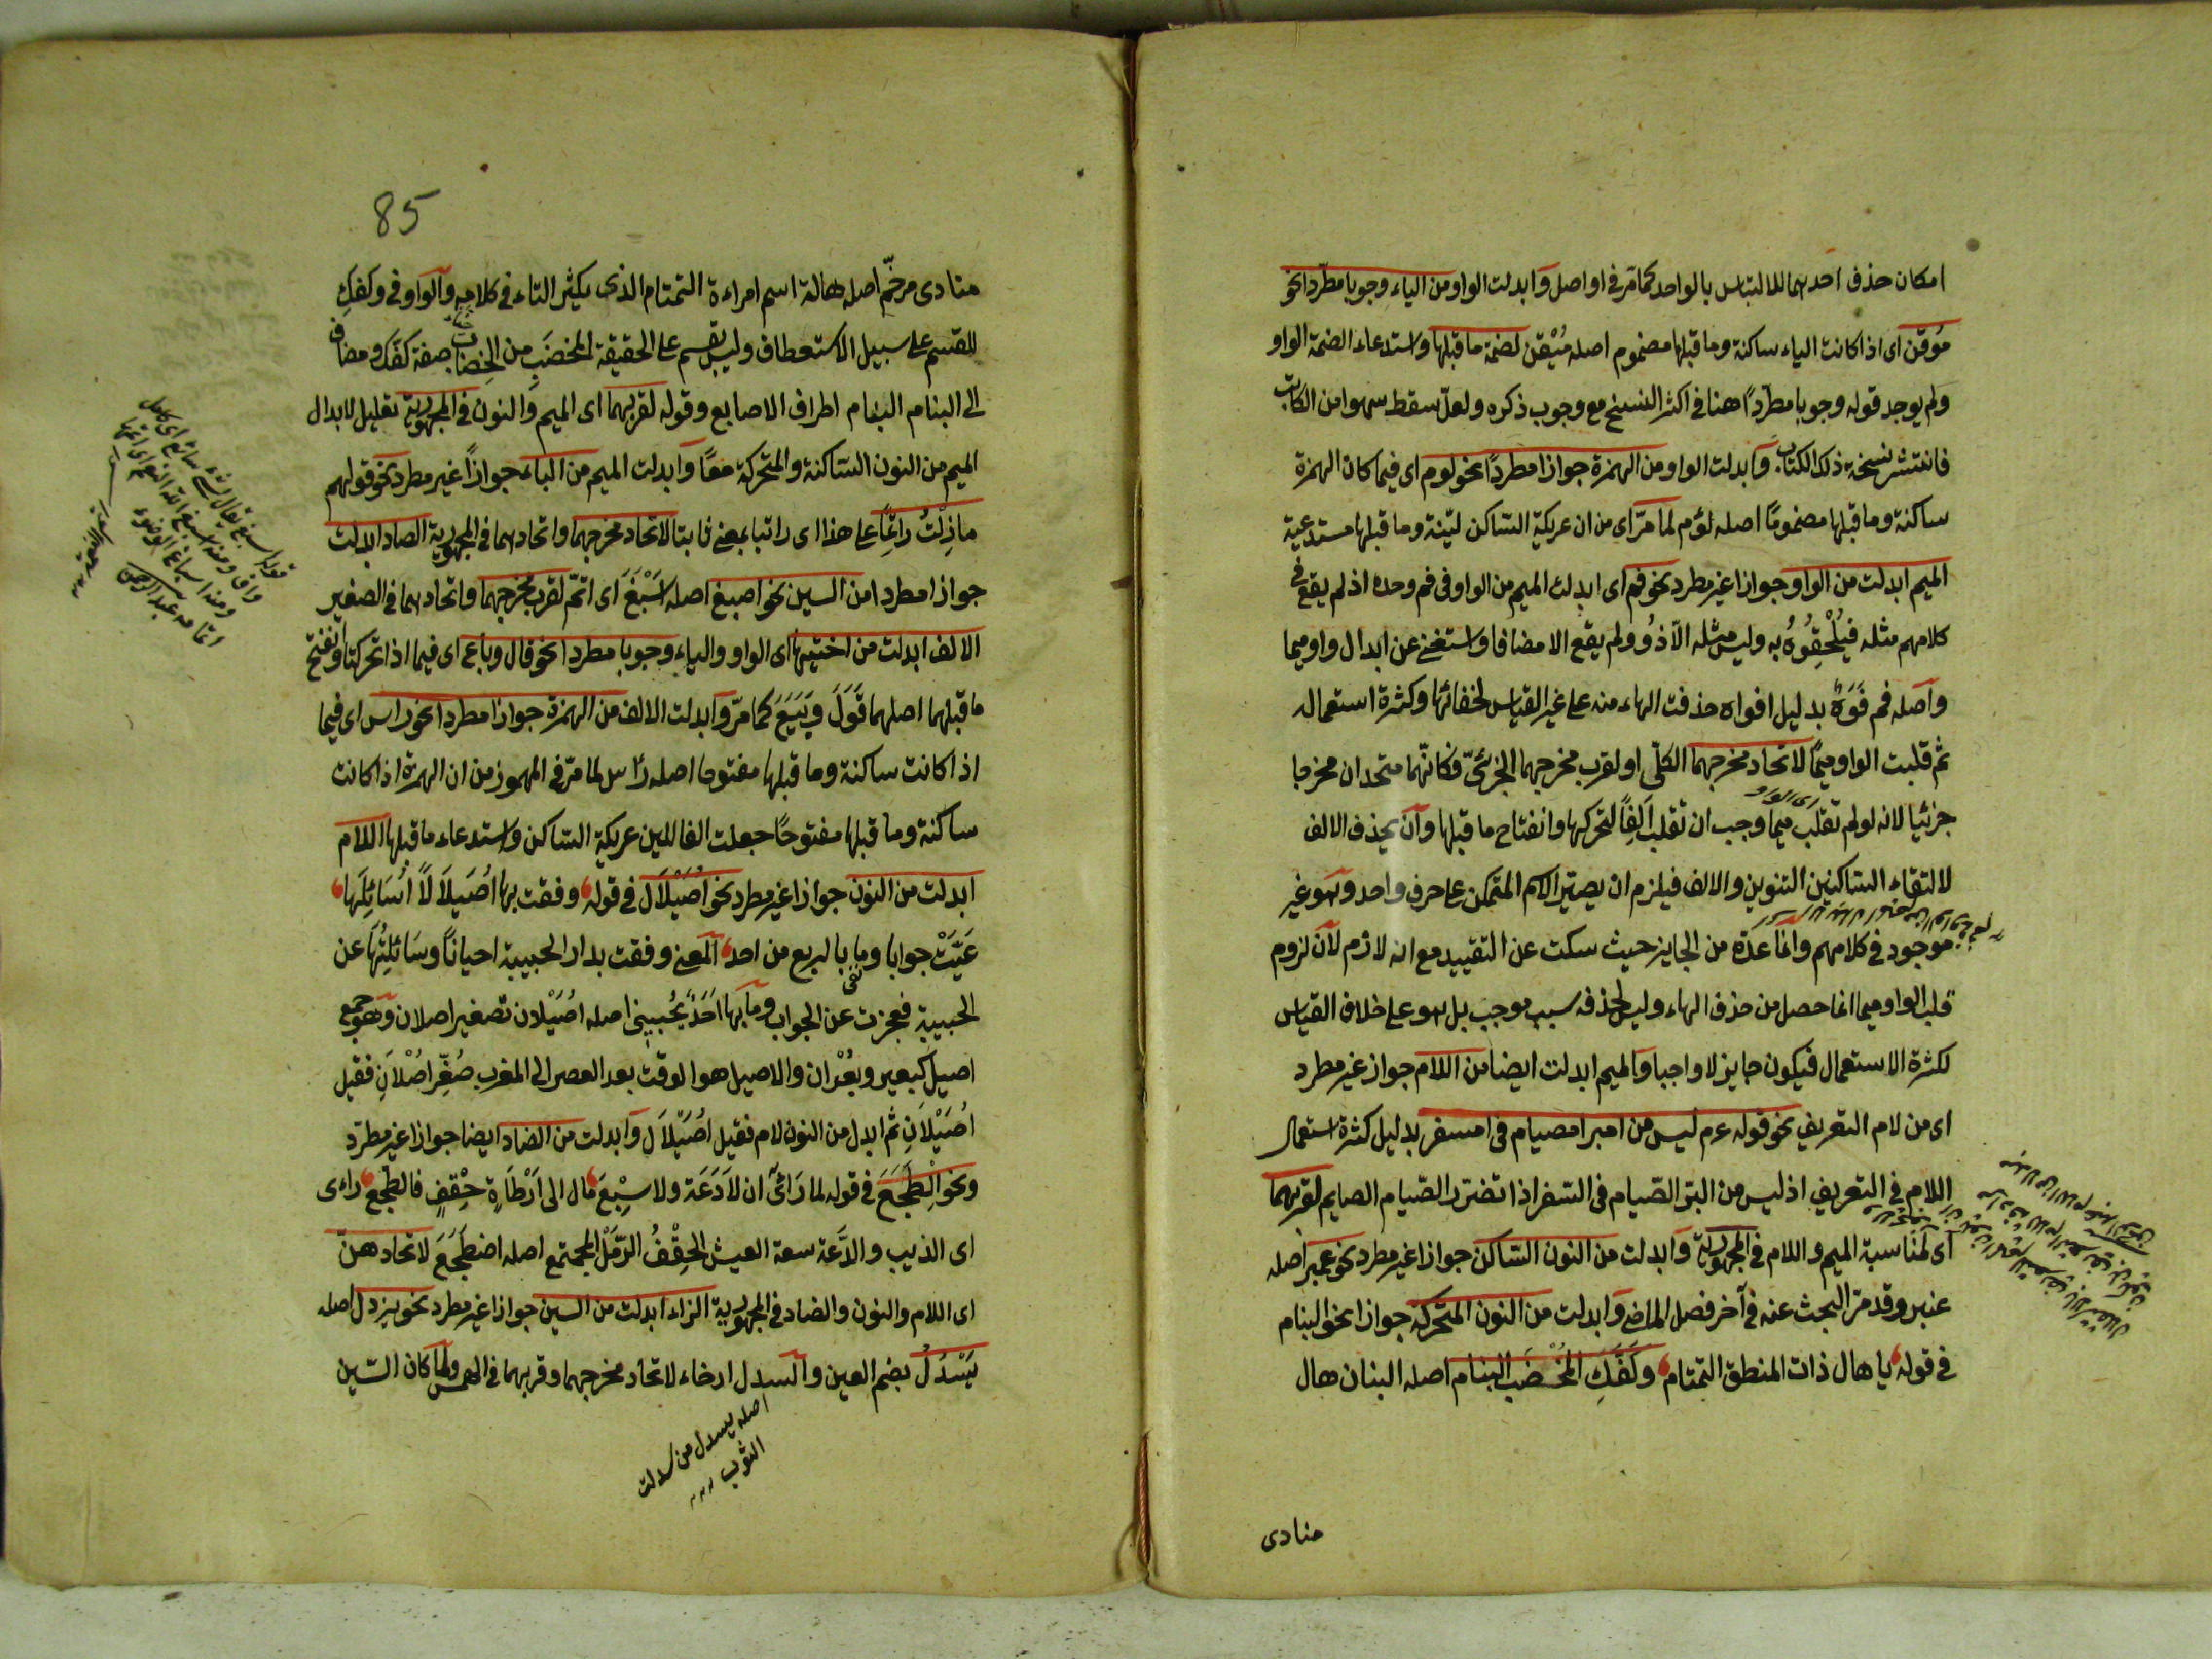 امكان حذف احدهما للالتباس بالواحد كما مر فى اواصل وابدلت الواو من الياء وجوبا مطردا نحو
مُوقن اى اذا كانت الياء ساكنة وما قبلها مضموم اصله مُيْقن لضمة ما قبلها واستدعاء الضمة الواو
ولم يوجد قوله وجوبا مطردًا هنا فى اكثر النسخ مع وجوب ذكره ولعلّ سقط سهوا من الكاتب
فانتشر نسخة ذلك الكتاب وابدلت الواو من الهمزة جوازا مطردًا نحو لوم اى فيما كان الهمزة
ساكنة وما قبلها مضمومًا اصله لؤم لما مرّ اى من ان عريكة الساكن ليّنة وما قبلها مستدعية
الميم ابدلت من الواو جوازا غير مطرد نحو فم اى ابدلت الميم من الواو فى فم وحده اذ لم يقع فى
كلامهم مثله فيُلْحِقُوهُ به وليس مثله الّا ذُو ولم يقع الا مضافا واستغنى عن ابدال واو ميما
واصله فم فَوَهٌ بدليل افواه حذفت الهاء منه على غير القياس لخفائها وكثرة استعماله
ثم قلبت الواو ميمًا لاتحاد مخرجهما الكلّى او لقرب مخرجهما الجزئىّ فكانّهما متحدان مخرجا
اى الواو
جزئيا لانه لو لم تقلب ميما وجب ان تقلب اَلِفًا لتحركها وانفتاح ما قبلها وآن يحذف الالف
لالتقاء الساكنين التنوين والالف فيلزم ان يصير الاسم المتمكن على حرف واحد وهو غير
موجود فى كلامهم وانما عدّه من الجايز حيث سكت عن التقييد مع انه لازم لآن لزوم
قلب الواو ميما انما حصل من حذف الهاء وليس لحذفه سبب موجب بل هو على خلاف القياس
لكثرة الاستعمال فيكون جايز لا واجبا والميم ابدلت ايضا من اللام جواز غير مطرد
اى من لام التعريف نحو قوله عم ليس من امبر امصيام فى امسفر بدليل كثرة استعمال
اللام فى التعريف اذ ليس من البرّ الصّيام فى السّفر اذا تضرر الصّيام الصايم لقربهما
اى لمناسبة الميم واللام فى المجهورية وابدلت من النون الساكن جوازا غير مطرد نحو عمبر اصله
عنبر وقد مرّ البحث عنه فى آخر فصل الماضى وابدلت من النون المتحركة جوازا نحو البنام
فى قوله يا هال ذات المنطق التمتام وكَفِّكِ المُخْضَبِ البنام اصله البنان هال
منادى
85
منادى مرخّم اصله هالة اسم امراءة التمتام الذى يكثر التاء فى كلامه والواو فى وكفكِ
للقسم على سبيل الاستعطاف وليس بقسم على الحقيقة المخضَبِ من الخِضاب صفة كفّك ومضاف
الى البنام البنام اطراف الاصابع وقوله لقربهما اى الميم والنون فى المجهورية تعليل لابدال
الميم من النون الساكنة والمتحركة معًا وابدلت الميم من الباء جوازاً غير مطرد نحو قولهم
مازِلْتُ راتِمًا على هذا اى راتبا بمعنى ثابتا لاتحاد مخرجهما واتحادهما فى المجهورية الصاد ابدلت
جوازا مطردا من السين نحو اصبغ اصله اَسْبَغَ اى اتمّ لقرب مخرجهما واتحادهما فى الصفير
الالف ابدلت من اختيها اى الواو والياء وجوبا مطردا نحو قال وباع اى فيما اذا تحركتا وانفتح
ما قبلهما اصلهما قَوَلَ وبَيَعَ كما مرّ وابدلت الالف من الهمزة جوازا مطردا نحو راس اى فيما
اذا كانت ساكنة وما قبلها مفتوحا اصله رأس لما مرّ فى المهموز من ان الهمزة اذا كانت
ساكنة وما قبلها مفتوحًا جعلت الفا للين عريكة الساكن واستدعاء ما قبلها اللام
ابدلت من النون جوازا غير مطرد نحو اُصَيْلَال فى قوله وقفت بها اُصَيلَالاً اُسَائِلُها
عَيَّتْ جوابا وما بالربع من احد المعنى وقفت بدار الحبيبة احيانًا وسَائلِتُهَا عن
الحبيبة فعجزت عن الجواب وما بها اَحَدٌ يُجيبنى اصله اُصَيْلان تصغير اصلان وهو جمع
اصيل كبعير وبُعْران والاصيل هو الوقت بعد العصر الى المغرب صُغِّر اُصْلَان فقيل
اُصَيْلَانِ ثم ابدل من النون لام فقيل اُصَيْلَال وابدلت من الضاد ايضا جوازا غير مطرّد
ونحو اِلْطَجَعَ فى قوله لما رَأى ان لَادَعَة ولا شِبَعَ مال الى اَرْطَاةِ حِقْفٍ فالطجع راءى
اى الذيب والدَّعَة سعة العيش الحِقْفُ الرَّمَلُ المجتمع اصله اضطجَعَ لاتحادهنّ
اى اللام والنون والضاد فى المجهورية الزاء ابدلت من السين جوازا غير مطرد نحو يزدل اصله
يَسْدُلُ بضم العين والسدل ارخاء لاتحاد مخرجهما وقربهما فى الهمس ولما كان السّين
اصله يسدل من سدلت
الثوب